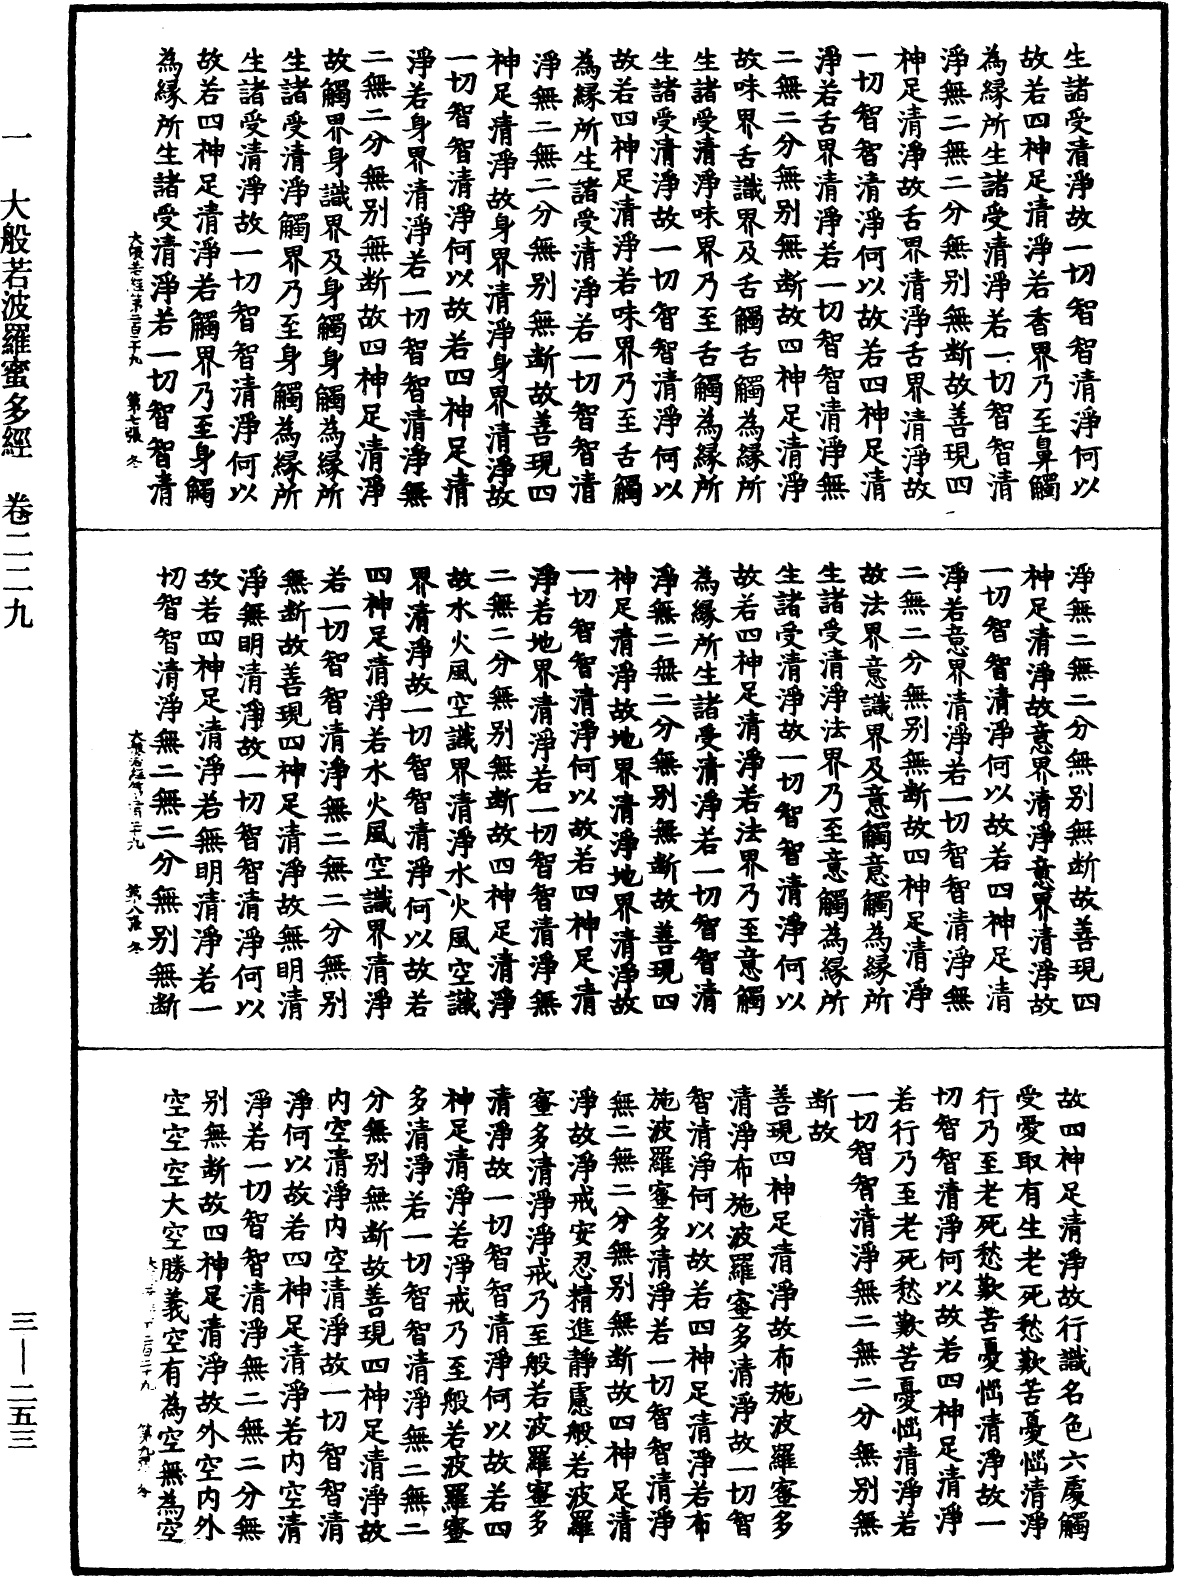 生諸受清淨故一切智智清淨何以
故若四神足清淨若香界乃至鼻觸
為緣所生諸受清淨若一切智智清
淨無二無二分無別無斷故善現四
神足清淨故舌界清淨舌界清淨故
一切智智清淨何以故若四神足清
淨若舌界清淨若一切智智清淨無
二無二分無別無斷故四神足清淨
故味界舌識界及舌觸舌觸為緣所
生諸受清淨味界乃至舌觸為緣所
生諸受清淨故一切智智清淨何以
故若四神足清淨若味界乃至舌觸
為緣所生諸受清淨若一切智智清
淨無二無二分無別無斷故善現四
神足清淨故身界清淨身界清淨故
一切智智清淨何以故若四神足清
淨若身界清淨若一切智智清淨無
二無二分無別無斷故四神足清淨
故觸界身識界及身觸身觸為緣所
生諸受清淨觸界乃至身觸為緣所
生諸受清淨故一切智智清淨何以
故若四神足清淨若觸界乃至身觸
為緣所生諸受清淨若一切智智清
大般若經第二百二十九 第七張 冬
淨無二無二分無別無斷故善現四
神足清淨故意界清淨意界清淨故
一切智智清淨何以故若四神足清
淨若意界清淨若一切智智清淨無
二無二分無別無斷故四神足清淨
故法界意識界及意觸意觸為緣所
生諸受清淨法界乃至意觸為緣所
生諸受清淨故一切智智清淨何以
故若四神足清淨若法界乃至意觸
為緣所生諸受清淨若一切智智清
淨無二無二分無別無斷故善現四
神足清淨故地界清淨地界清淨故
一切智智清淨何以故若四神足清
淨若地界清淨若一切智智清淨無
二無二分無別無斷故四神足清淨
故水火風空識界清淨水火風空識
界清淨故一切智智清淨何以故若
四神足清淨若水火風空識界清淨
若一切智智清淨無二無二分無別
無斷故善現四神足清淨故無明清
淨無明清淨故一切智智清淨何以
故若四神足清淨若無明清淨若一
切智智清淨無二無二分無別無斷
大般若經第二百二十九 第八張 冬
故四神足清淨故行識名色六處觸
受愛取有生老死愁歎苦憂惱清淨
行乃至老死愁歎苦憂惱清淨故一
切智智清淨何以故若四神足清淨
若行乃至老死愁歎苦憂惱清淨若
一切智智清淨無二無二分無別無
斷故
善現四神足清淨故布施波羅蜜多
清淨布施波羅蜜多清淨故一切智
智清淨何以故若四神足清淨若布
施波羅蜜多清淨若一切智智清淨
無二無二分無別無斷故四神足清
淨故淨戒安忍精進靜慮般若波羅
蜜多清淨淨戒乃至般若波羅蜜多
清淨故一切智智清淨何以故若四
神足清淨若淨戒乃至般若波羅蜜
多清淨若一切智智清淨無二無二
分無別無斷故善現四神足清淨故
內空清淨內空清淨故一切智智清
淨何以故若四神足清淨若內空清
淨若一切智智清淨無二無二分無
別無斷故四神足清淨故外空內外
空空空大空勝義空有為空無為空
二百二十九 第九張 冬
一 大般若波羅蜜多經 卷二二九
三—二五三